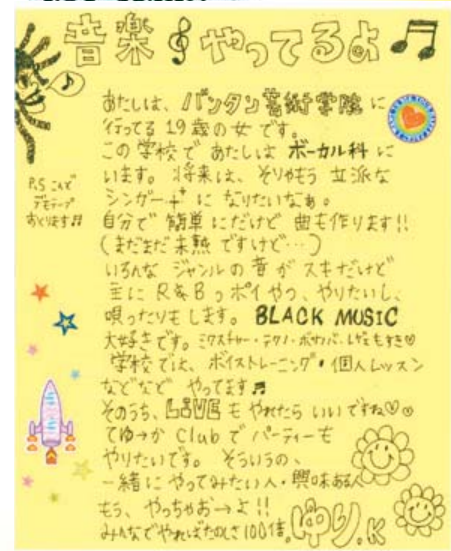 音楽 やってるよ
あたしは、バンタン芸術学院 に
行ってる 19歳の女です。
この学校で あたしは ボーカル科 に
います。将来は、そりゃもう 立派な
シンガー になりたいなぁ。
自分で 簡単にだけど 曲も作ります!!
(まだまだ未熟 ですけど…)
いろんな ジャンルの音が スキだけど
主に R&Bっポイやつ、やりたいし、
唄ったりもします。 BLACK MUSIC
大好きです。ミクスチャー・テクノ・ボサノバ、レゲエもすき♡
学校では、ボイストレーニング・個人レッスン
などなど やってます♬
そのうち、LIVE も やれたら いいですね♡
てゆ→か Club で パーティーも
やりたいです。 そういうの、
一緒に やってみたい人・興味ある人
もう、やっちゃお→よ!!
みんなでやればたのしさ100倍。ゆり.K
P.S こんど
デモテープ
おくります♬